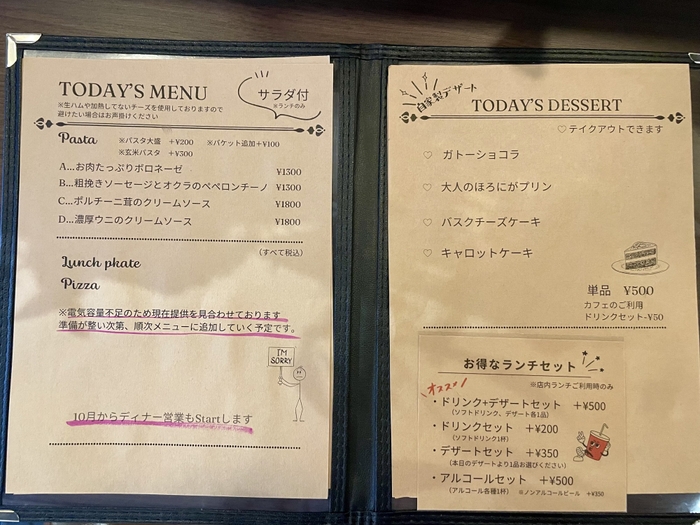 TODAY'S MENU
サラダ付
※ランチのみ
※生ハムや加熱してないチーズを使用しておりますので
避けたい場合はお声掛けください
Pasta ※パスタ大盛 +¥200 ※バケット追加+¥100
※玄米パスタ +¥300
A...お肉たっぷりボロネーゼ ¥1300
B...粗挽きソーセージとオクラのペペロンチーノ ¥1300
C...ポルチーニ茸のクリームソース ¥1800
D...濃厚ウニのクリームソース ¥1800
(すべて税込)
Lunch pkate
Pizza
※電気容量不足のため現在提供を見合わせております
準備が整い次第、順次メニューに追加していく予定です。
I'M
SORRY
10月からディナー営業もStartします
自家製デザート
TODAY'S DESSERT
♡テイクアウトできます
♡ ガトーショコラ
♡ 大人のほろにがプリン
♡ バスクチーズケーキ
♡ キャロットケーキ
単品 ¥500
カフェのご利用
ドリンクセット-¥50
お得なランチセット
※店内ランチご利用時のみ
オススメ!
・ドリンク+デザートセット +¥500
(ソフトドリンク、デザート各1品)
・ドリンクセット +¥200
(ソフトドリンク1杯)
・デザートセット +¥350
(本日のデザートより1品お選びください)
・アルコールセット +¥500
(アルコール各種1杯) ※ノンアルコールビール +¥350